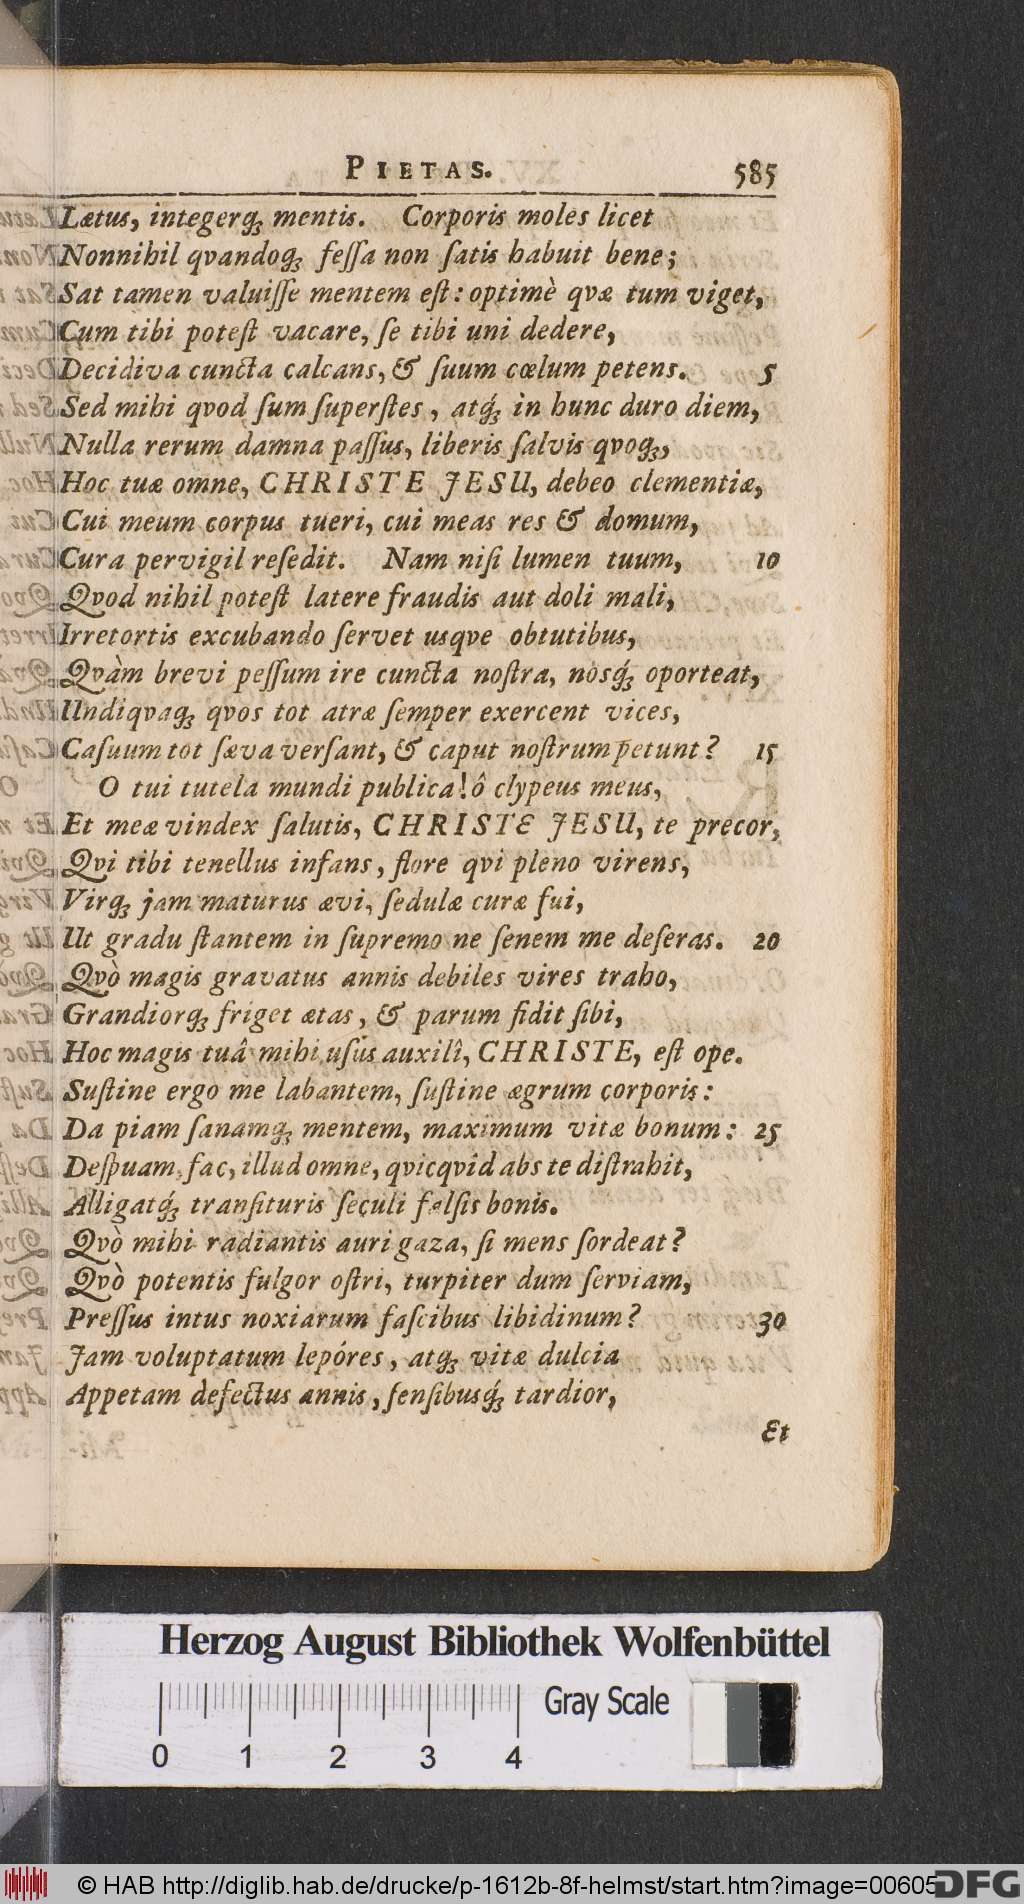 PIETAS. 585
Lætus, integerq́ꝫ mentis. Corporis moles licet
Nonnihil qvandoqꝫ feſſa non ſatis habuit bene;
Sat tamen valuiſſe mentem eſt: optimè qvæ tum viget,
Cum tibi poteſt vacare, ſe tibi uni dedere,
Decidiva cuncta calcans, & ſuum cœlum petens. 5
Sed mihi qvod ſum ſuperſtes, atq́ꝫ in hunc duro diem,
Nulla rerum damna paſſus, liberis ſalvis qvoqꝫ,
Hoc tuæ omne, CHRISTE JESU, debeo clementiæ,
Cui meum corpus tueri, cui meas res & domum,
Cura pervigil reſedit. Nam niſi lumen tuum, 10
Qvod nihil poteſt latere fraudis aut doli mali,
Irretortis excubando ſervet usqve obtutibus,
Qvàm brevi peſſum ire cuncta noſtra, nosq́ꝫ oporteat,
Undiqvaqꝫ qvos tot atræ ſemper exercent vices,
Caſuum tot ſæva verſant, & caput noſtrum petunt? 15
O tui tutela mundi publica! ô clypeus meus,
Et meæ vindex ſalutis, CHRISTE JESU, te precor,
Qvi tibi tenellus infans, flore qvi pleno virens,
Virqꝫ jam maturus ævi, ſedulæ curæ fui,
Ut gradu ſtantem in ſupremo ne ſenem me deſeras. 20
Qvò magis gravatus annis debiles vires traho,
Grandiorqꝫ friget ætas, & parum fidit ſibi,
Hoc magis tuâ mihi uſus auxilî, CHRISTE, eſt ope.
Suſtine ergo me labantem, ſuſtine ægrum corporis:
Da piam ſanamqꝫ mentem, maximum vitæ bonum: 25
Deſpuam, fac, illud omne, qvicqvid abs te diſtrahit,
Alligatq́ꝫ tranſituris ſeculi falſis bonis.
Qvò mihi radiantis auri gaza, ſi mens ſordeat?
Qvò potentis fulgor oſtri, turpiter dum ſerviam,
Preſſus intus noxiarum faſcibus libidinum? 30
Jam voluptatum lepóres, atqꝫ vitæ dulcia
Appetam defectus annis, ſenſibusq́ꝫ tardior,
Et
Herzog August Bibliothek Wolfenbüttel
Gray Scale
0 1 2 3 4
© HAB http://diglib.hab.de/drucke/p-1612b-8f-helmst/start.htm?image=00605
DFG